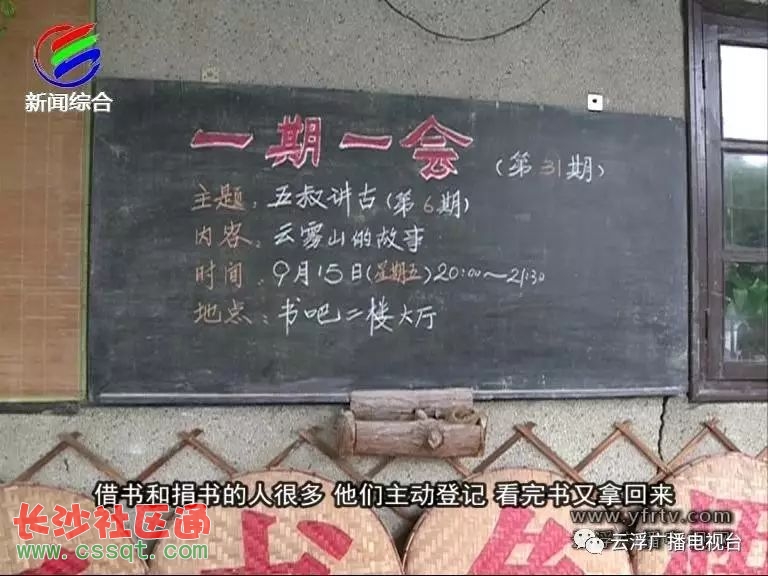 新闻综合
一期一会(第31期)
主题:五叔讲古(第6期)
内容:云雾山的故事
时间:9月15日(星期五)20:00~21:30
地点:书吧二楼大厅
借书和捐书的人很多 他们主动登记 看完书又拿回来
www.yfrtv.com
长沙社区通
www.cssqt.com
云浮广播电视台
书